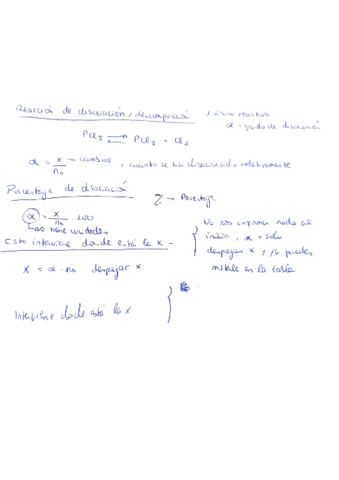 Reacción de disociación / descomposición / único reactivo
α - grado de disociación
PCl5 ⇌ PCl3 + Cl2
α = x/n0 → cambios, cuanto se ha disociado relativamente
Porcentaje de disociación % → Porcentaje
α = x/n0 · 100
no tiene unidades
Esto interviene donde está la x -
x = α · n0 despejar x
No nos importa nada al
inicio, α = solo
despejar x y ya puedes
en la tabla
Interviene donde está la x